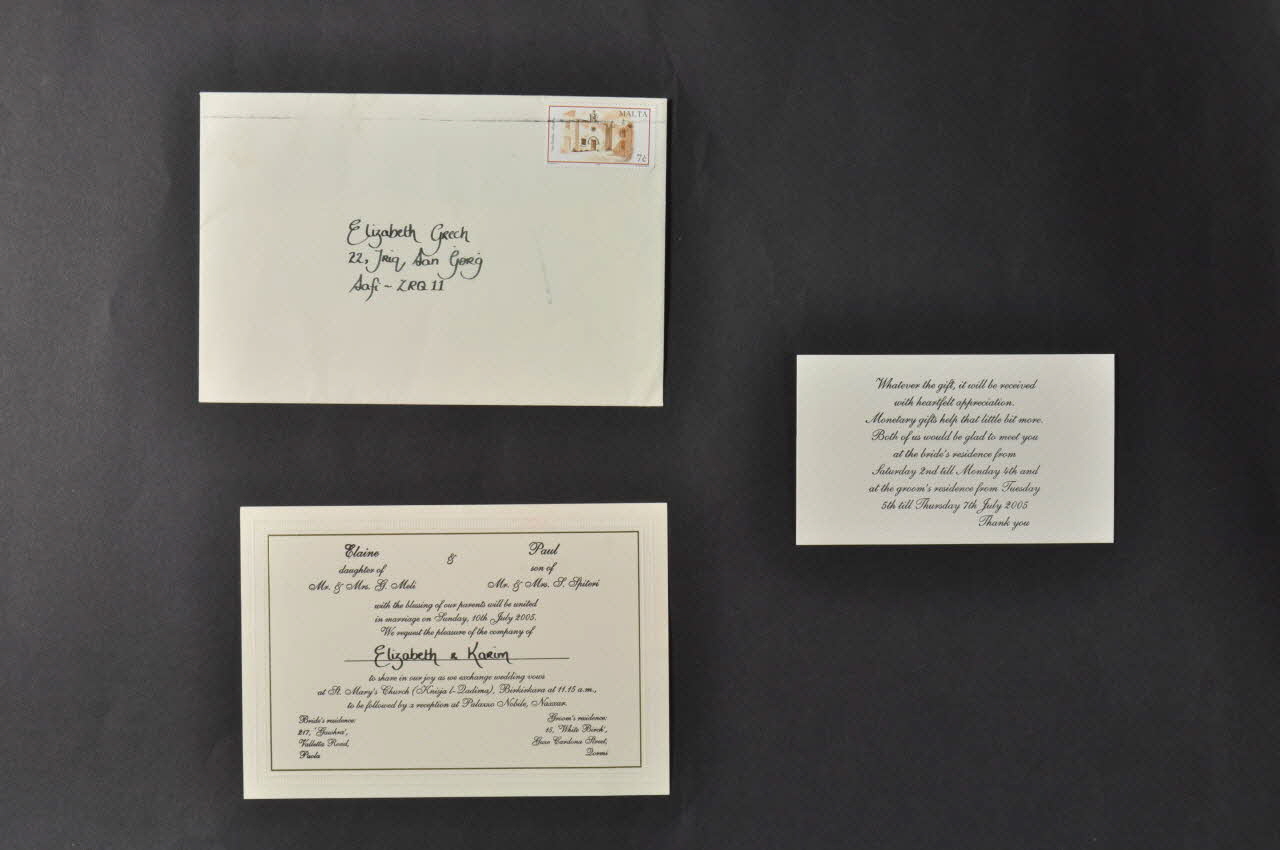 MALTA
7c
Elizabeth Grech
22, Triq San Ġorġ
Safi - ZRQ 11
Whatever the gift, it will be received
with heartfelt appreciation.
Monetary gifts help that little bit more.
Both of us would be glad to meet you
at the bride's residence from
Saturday 2nd till Monday 4th and
at the groom's residence from Tuesday
5th till Thursday 7th July 2005
Thank you
Elaine & Paul
daughter of son of
Mr. & Mrs. G. Meli Mr. & Mrs. S. Spiteri
with the blessing of our parents will be united
in marriage on Sunday, 10th July 2005.
We request the pleasure of the company of
Elizabeth & Karim
to share in our joy as we exchange wedding vows
at St. Mary's Church (Knisja l-Qadima), Birkirkara at 11.15 a.m.,
to be followed by a reception at Palazzo Nobile, Naxxar.
Bride's residence:
217, 'Gawhra',
Valletta Road,
Paola
Groom's residence:
15, 'White Birch',
Guze Cardona Street,
Qormi